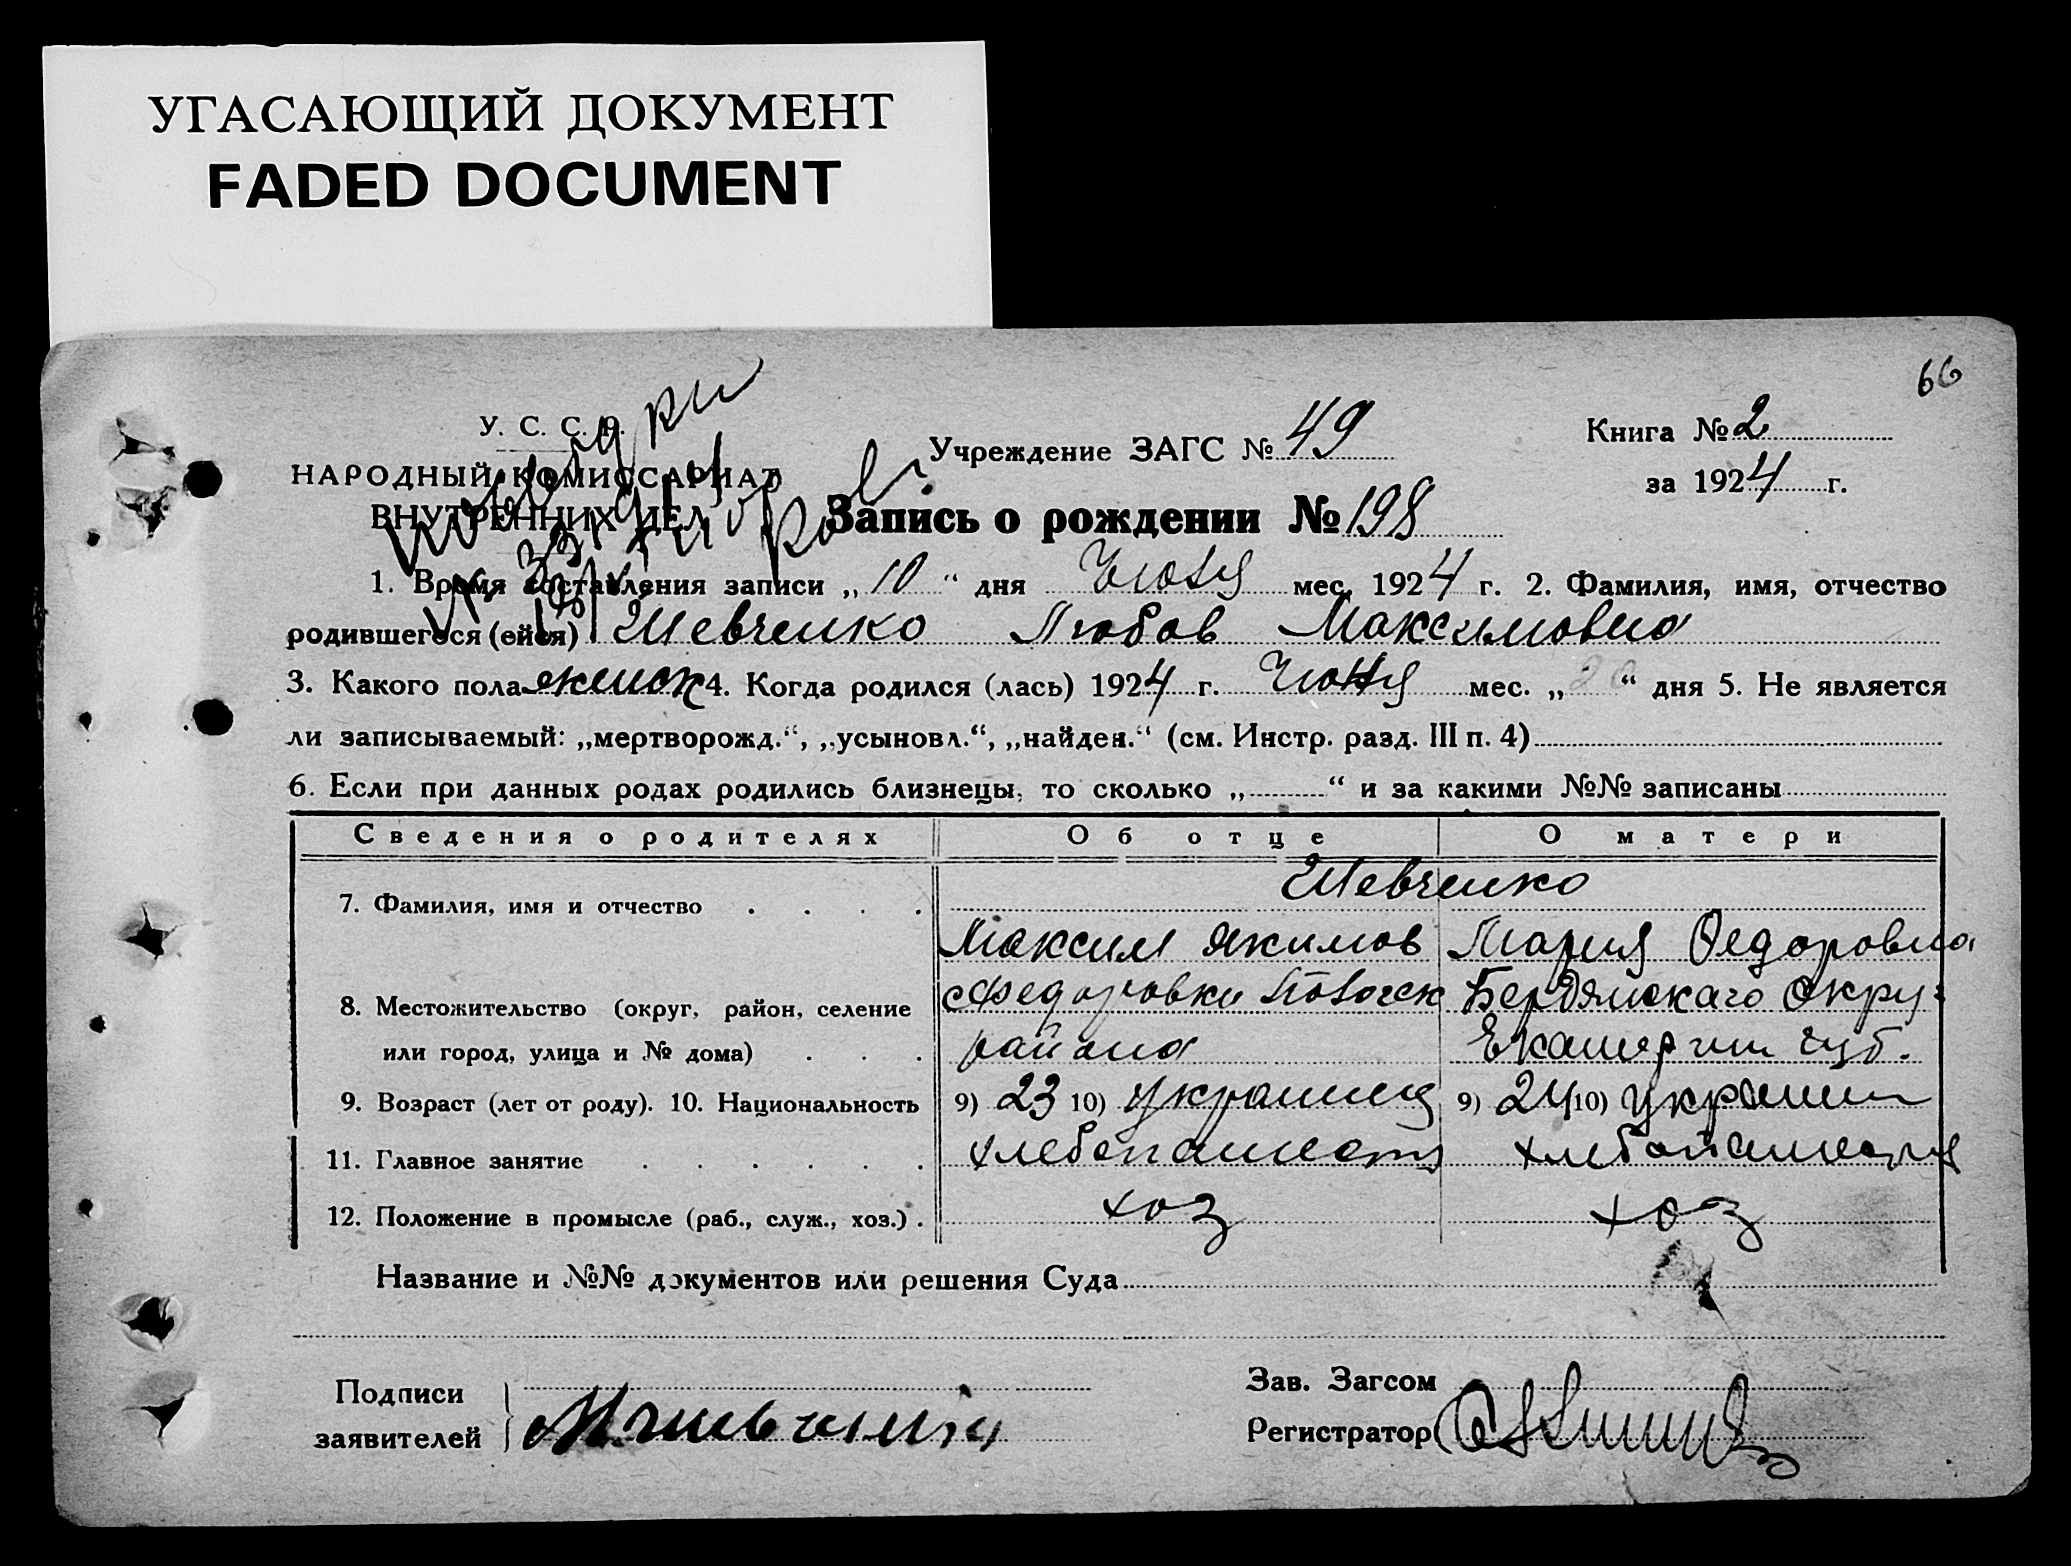 УГАСАЮЩИЙ ДОКУМЕНТ
FADED DOCUMENT
66
У. С. С. Р.
НАРОДНЫЙ КОМИССАРИАТ
ВНУТРЕННИХ ДЕЛ
Учреждение ЗАГС № 49
Книга № 2
за 1924 г.
Запись о рождении № 198
1. Время составления записи „ 10 “ дня Июля мес. 1924 г. 2. Фамилия, имя, отчество
родившегося (ейся) Шевченко Любов Максимовна
3. Какого пола женск 4. Когда родился (лась) 1924 г. Июня мес. „ “ дня 5. Не является
ли записываемый: „мертворожд.“, „усыновл.“, „найден.“ (см. Инстр. разд. III п. 4)
6. Если при данных родах родились близнецы, то сколько „ “ и за какими №№ записаны
Сведения о родителях Об отце О матери
7. Фамилия, имя и отчество Шевченко
Максим Якимов Мария Федоровна
8. Местожительство (округ, район, селение с Федоровки Бердянскаго Округ
или город, улица и № дома) района Екатерин губ.
9. Возраст (лет от роду). 10. Национальность 9) 23 10) украинец 9) 24 10) украин
11. Главное занятие хлебопашеств хлебопашеств
12. Положение в промысле (раб., служ., хоз.) хоз хоз
Название и №№ документов или решения Суда
Подписи
заявителей
Зав. Загсом
Регистратор